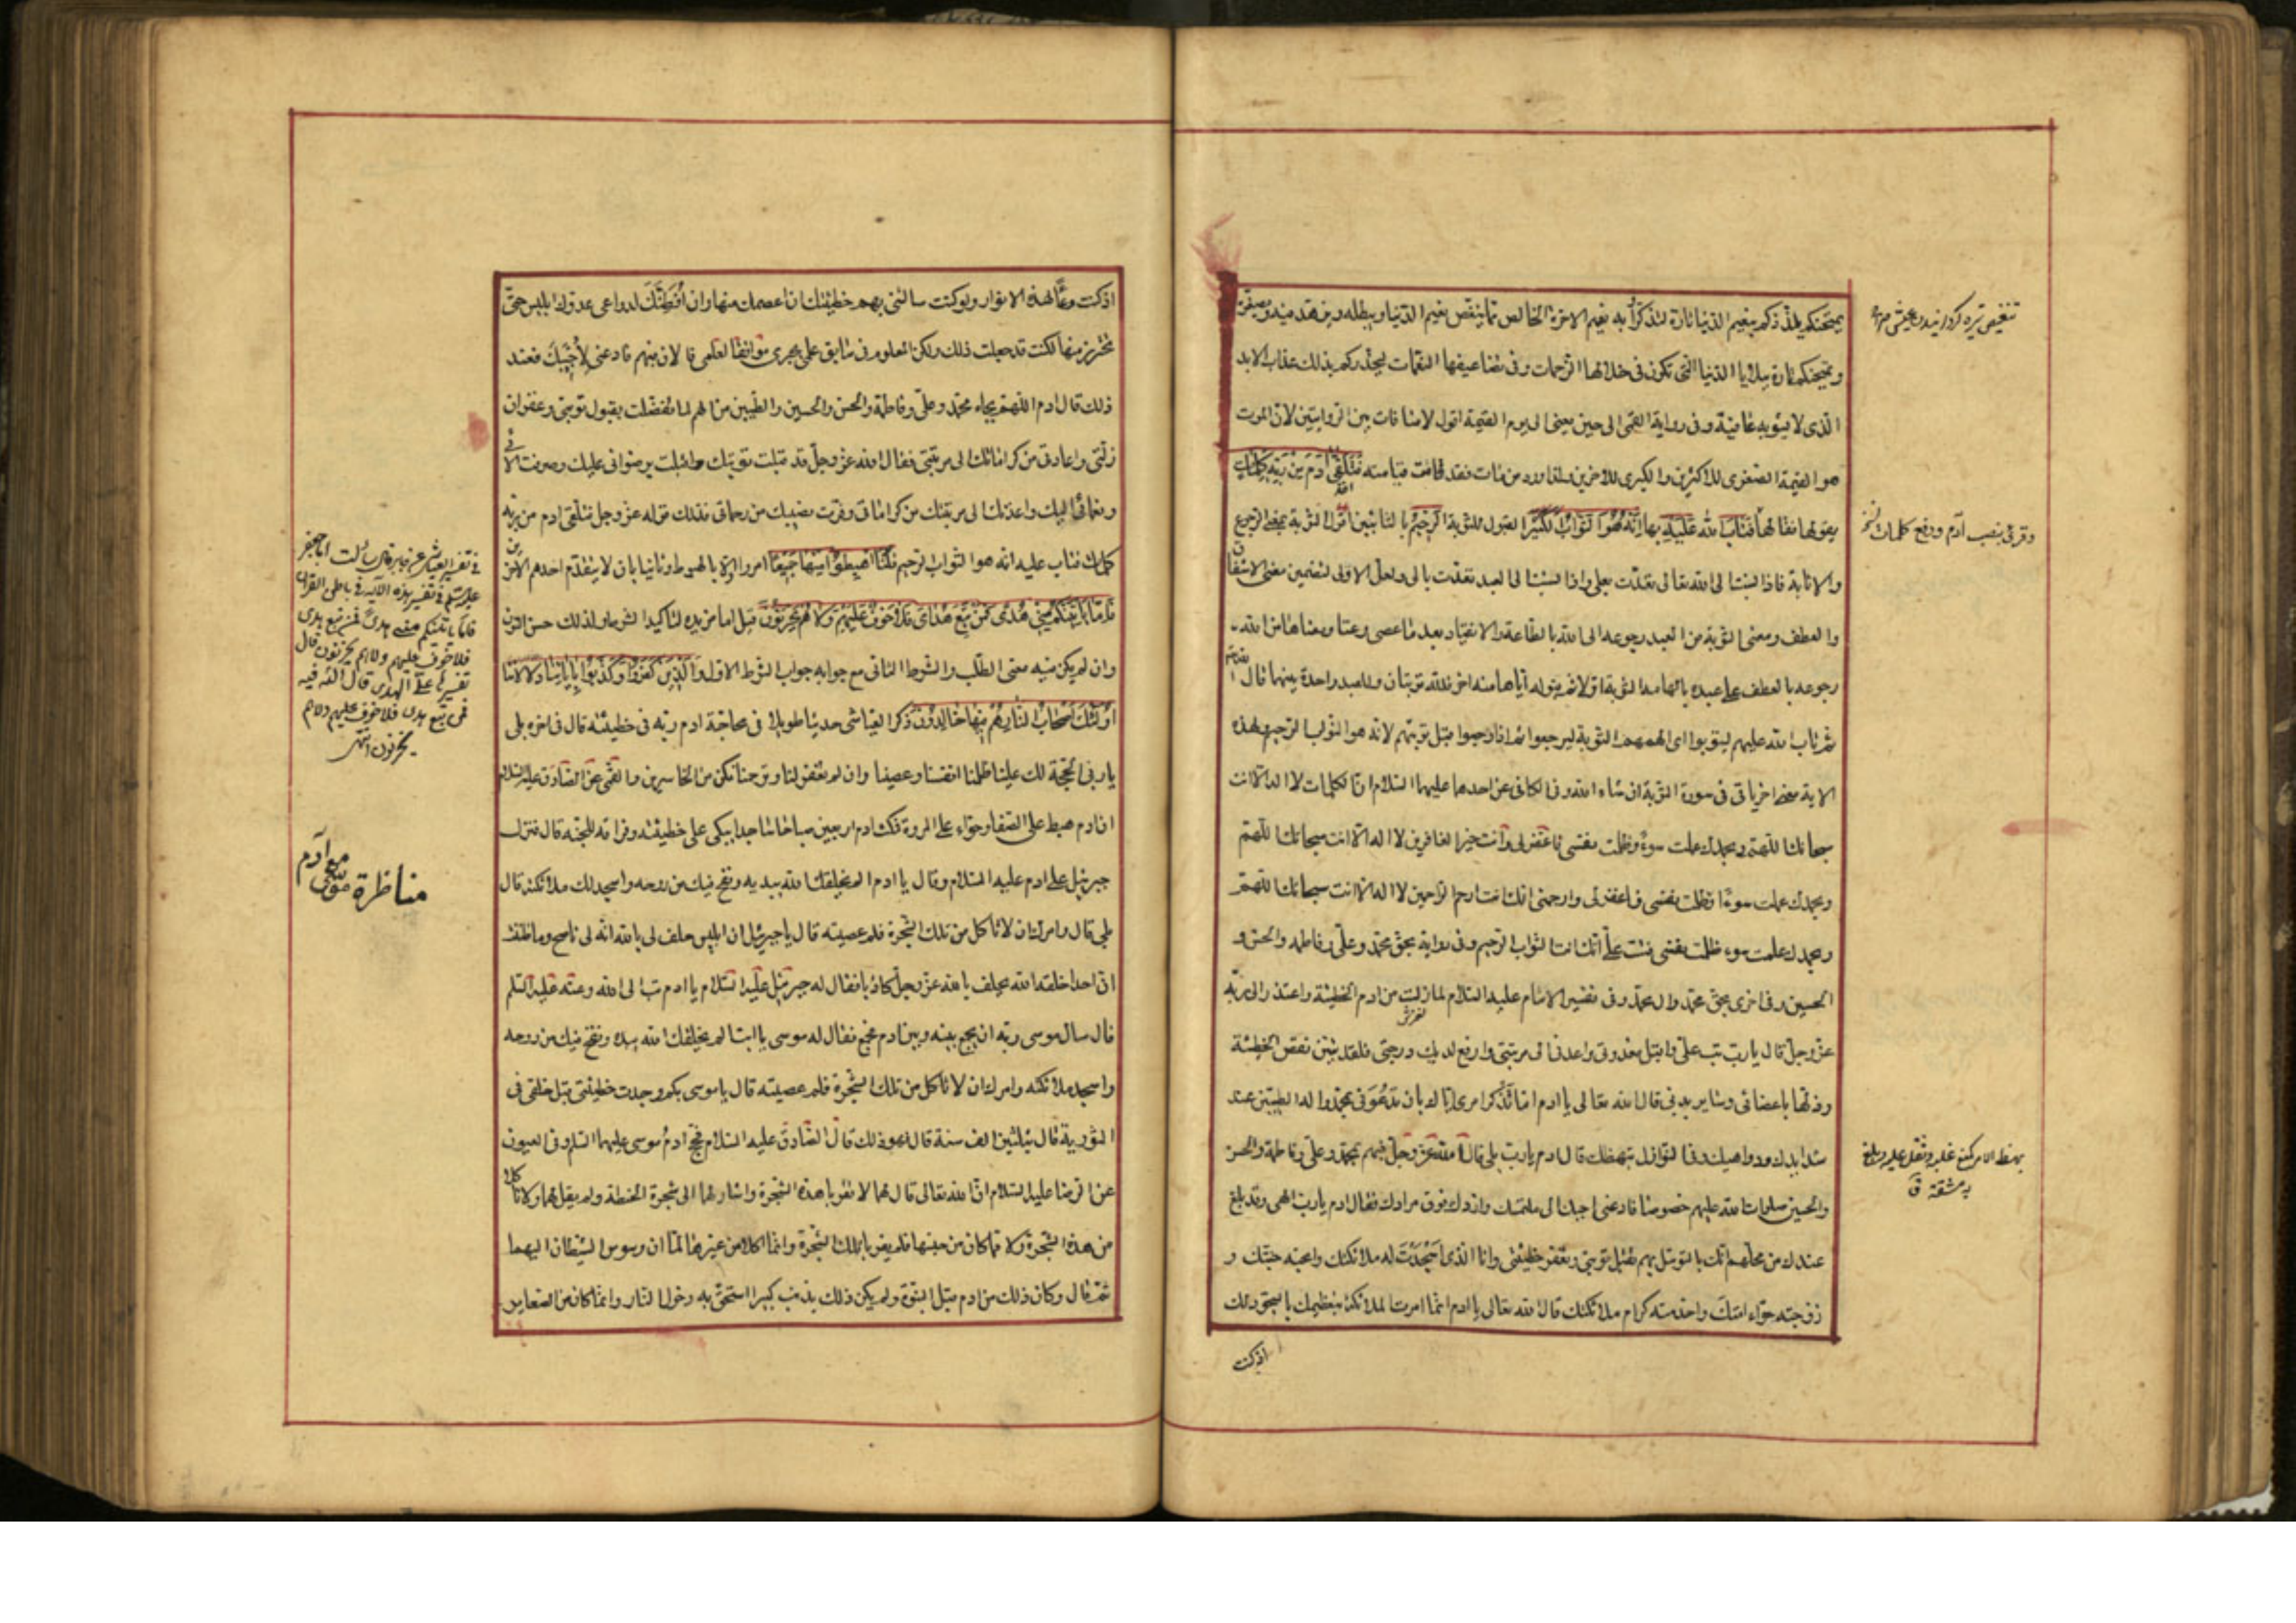 يمتحنكم يلذذكم بنعيم الدنيا تارة لتذكروا به نعيم الاخرة الخالص مما ينقص نعيم الدنيا ويبطله ويزهد فيه ويصغره
ويمتحنكم تارة ببلايا الدنيا التي تكون في خلالها الرحمات وفي تضاعيفها النقمات ليحذركم بذلك عذاب الابد
الذي لا يشوبه عافية وفي رواية القمي الى حين يعني الى يوم القيمة اقول لا منافات بين الروايتين لان الموت
هو القيمة الصغرى للاكثرين والكبرى للاخرين ولما ورد من مات فقد قامت قيامته فتلقى ادم من ربه كلمات
يقولها فقالها فتاب الله عليه بها انه هو التواب الكثير القبول للتوبة الرحيم بالتائبين اقول التوبة بمعنى الرجوع
والانابة فاذا نسبت الى الله تعالى تعدت بعلى واذا نسبت الى العبد تعدت بالى ولعل الاولى لتضمين معنى الاشفاق
والعطف ومعنى التوبة من العبد رجوعه الى الله بالطاعة والانقياد بعد ما عصى وعتا ومعناها من الله
رجوعه بالعطف على عبده بالهامه التوبة اولا ثم قبوله اياها منه اخرا فلله توبتان وللعبد واحدة بينهما قال الله تعالى
ثم تاب الله عليهم ليتوبوا اى الهمهم التوبة ليرجعوا ثم اذا رجعوا قبل توبتهم لانه هو التواب الرحيم ولهذه
الاية معنى اخر ياتي في سورة التوبة ان شاء الله وفي الكافي عن احدهما عليهما السلام ان الكلمات لا اله الا انت
سبحانك اللهم وبحمدك عملت سوءً وظلمت نفسي فاغفر لي وانت خير الغافرين لا اله الا انت سبحانك اللهم
وبحمدك عملت سوءًا وظلمت نفسي فاغفر لي وارحمني انك انت ارحم الراحمين لا اله الا انت سبحانك اللهم
وبحمدك عملت سوء ظلمت نفسي فتب علي انك انت التواب الرحيم وفي رواية بحق محمد وعلي وفاطمه والحسن و
الحسين وفي اخرى بحق محمد وال محمد وفي تفسير الامام عليه السلام لما زلت من ادم الخطيئة واعتذر الى ربه
عز وجل قال يا رب تب علي واقبل معذرتي واعدني الى مرتبتي وارفع لديك درجتي فلقد تبين نقص الخطيئة
وذلها باعضائي وساير بدني قال الله تعالى يا ادم اما تذكر امري اياك بان تدعوني بمحمد واله الطيبين عند
شدايدك ودواهيك وفي النوازل تبهظك قال ادم يا رب بلى قال الله عز وجل فبهم بمحمد وعلي وفاطمة والحسن
والحسين صلوات الله عليهم خصوصا فادعني اجبك الى ملتمسك وازدك فوق مرادك فقال ادم يا رب الهى وقد بلغ
عندك من محلهم انك بالتوسل بهم تقبل توبتي وتغفر خطيئتي وانا الذي اسجدت له ملائكتك وابحته جنتك و
زوجته حواء امتك واخدمته كرام ملائكتك قال الله تعالى يا ادم انما امرت الملائكة بتعظيمك بالسجود لك
اذ كنت
وقرئ بنصب آدم ورفع كلمات
بهظه الامر كمنع غلبه وثقل عليه وبلغ
به مشقة ق
اذ كنت وعاء لهذه الانوار ولو كنت سالتني بهم قبل خطيئتك ان اعصمك منها وان افطنك لدواعي عدوك ابليس حتى
تحترز منها لكنت قد جعلت ذلك ولكن المعلوم في سابق علمي يجري موافقا لعلمي فالان فبهم فادعني لاجبك فعند
ذلك قال ادم اللهم بجاه محمد وعلي وفاطمة والحسن والحسين والطيبين من الهم لما تفضلت بقبول توبتي وغفران
زلتي واعادتي من كراماتك الى مرتبتي فقال الله عز وجل قد قبلت توبتك واقبلت برضواني عليك وصرفت الائي
ونعمائي اليك واعدتك الى مرتبتك من كراماتي ووفرت نصيبك من رحماتي فذلك قوله عز وجل فتلقى ادم من ربه
كلمات فتاب عليه انه هو التواب الرحيم قلنا اهبطوا منها جميعا امر اولا بالهبوط وثانيا بان لا يتقدم احدهم الاخرين
فاما ياتينكم مني هدى فمن تبع هداى فلا خوف عليهم ولا هم يحزنون قيل اما مزيده لتاكيد الشرط ولذلك حسن النون
وان لم يكن فيه معنى الطلب والشرط الثاني مع جوابه جواب الشرط الاول والذين كفروا وكذبوا باياتنا دلالاتنا
اولئك اصحاب النار هم فيها خالدون ذكر العياشي حديثا طويلا في محاجة ادم ربه في خطيئته قال في اخره بلى
يا رب الحجة لك علينا ظلمنا انفسنا وعصينا وان لم تغفر لنا وترحمنا نكن من الخاسرين والقمي عن الصادق عليه السلام
ان ادم هبط على الصفا وحواء على المروة فمكث ادم اربعين صباحا ساجدا يبكي على خطيئته وفراقه للجنه قال فنزل
جبرئيل على ادم عليه السلام وقال يا ادم الم يخلقك الله بيديه ونفخ فيك من روحه واسجد لك ملائكته قال
بلى قال وامرك ان لا تاكل من تلك الشجرة فلم عصيته قال يا جبرئيل ان ابليس حلف لي بالله انه لي ناصح وما ظننت
ان احدا خلقه الله يحلف بالله عز وجل كاذبا فقال له جبرئيل عليه السلام يا ادم تب الى الله وعنه عليه السلم
قال سال موسى ربه ان يجمع بينه وبين ادم فجمع فقال له موسى يا ابت الم يخلقك الله بيده ونفخ فيك من روحه
واسجد ملائكته وامرك ان لا تاكل من تلك الشجرة فلم عصيته قال يا موسى بكم وجدت خطيئتي قبل خلقي في
التورية قال بثلثين الف سنة قال فهو ذلك قال الصادق عليه السلام فحج ادم موسى عليهما السلم وفي العيون
عن الرضا عليه السلام ان الله تعالى قال لهما لا تقربا هذه الشجرة واشار لهما الى شجرة الحنطة ولم يقل لهما ولا تاكلا
من هذه الشجرة ولا مما كان من جنسها فلم يقربا تلك الشجرة وانما اكلا من غيرها لما ان وسوس الشيطان اليهما
ثم قال وكان ذلك من ادم قبل النبوة ولم يكن ذلك بذنب كبير استحق به دخول النار وانما كان من الصغاير
في تفسير العياشي عن جابر قال سالت ابا جعفر
عليه السلم في تفسير هذه الآية في باطن القران
فاما ياتينكم مني هدى فمن تبع هدى
فلا خوف عليهم ولا هم يحزنون قال
تفسيرها علي الهدى قال الله فيه
فمن تبع هدى فلا خوف عليهم ولا هم
يحزنون انتهى
مناظرة موسى مع آدم